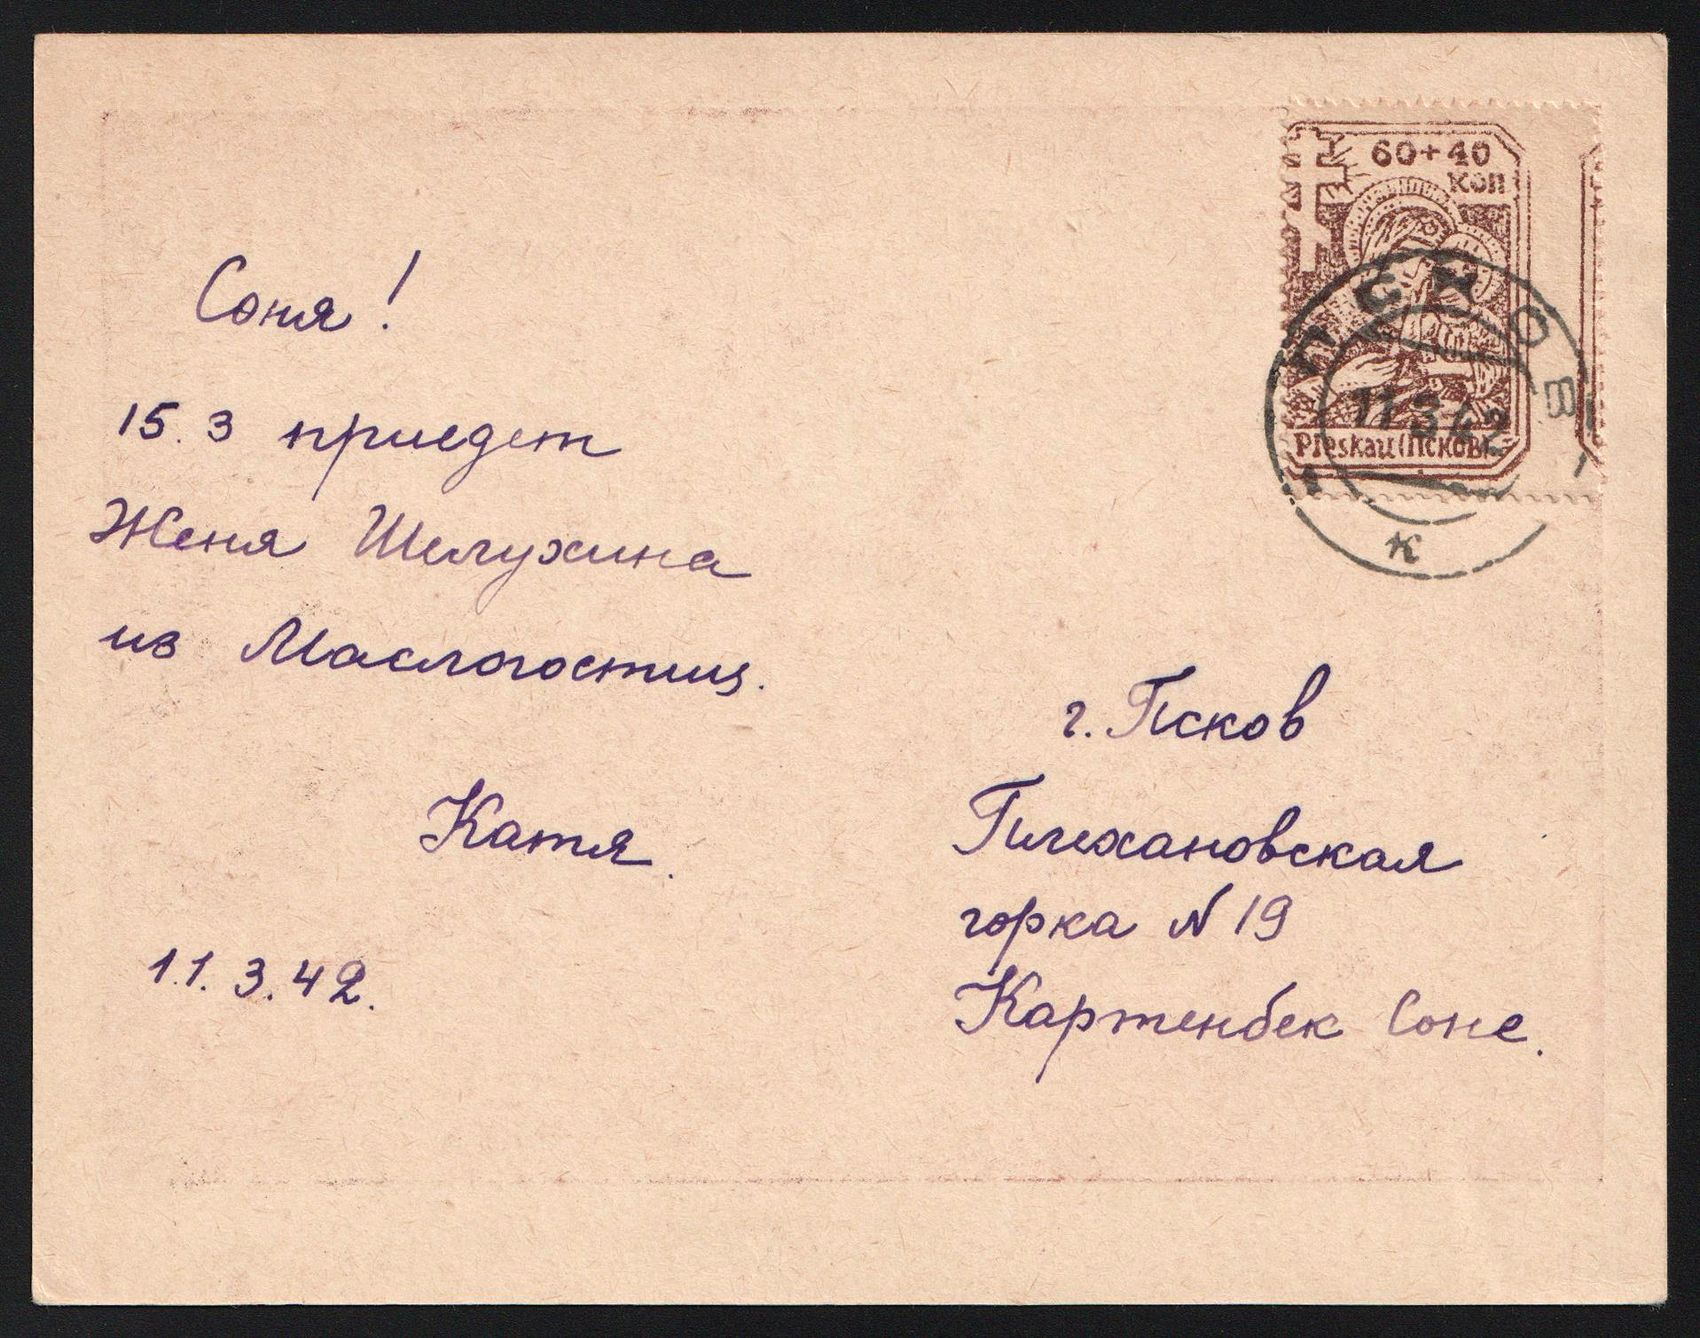 60+40
коп
Pleskau (Псков)
ПСКОВ
11 3 42
к
Соня!
15.3 приедет
Женя Шелухина
из Маслогостиц.
Катя.
11.3.42.
г. Псков
Плехановская
горка N 19
Картенбек Соне.